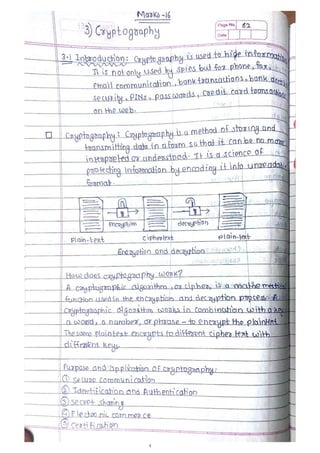 Marks -16
3) Cryptography
Page No. 62
Date
3.1 Introduction: Cryptography is used to hide information
It is not only used by spies but for phone, fax,
email communication, bank transactions, bank
security, PINs, passwords, credit card
on the web.
Cryptography: Cryptography is a method of storing and
transmitting data in a form so that it can be no more
intrepreted or understood. It is a science of
protecting Information by encoding it into
format.
encryption
decryption
Plain-text
Ciphertext
plain-text
Encryption and decryption
How does cryptography work?
A cryptographic algorithm, or cipher, is a
function used in the encryption and decryption process. A
cryptographic algorithm works in combination with a
a word, a number, or phrase - to encrypt the plaintext
The same plaintext encrypts to different cipher text with
different keys.
Purpose and application of cryptography:
① Secure communication
② Identification and Authentication
③ secret sharing
④ Electronic commerce
⑤ Certification